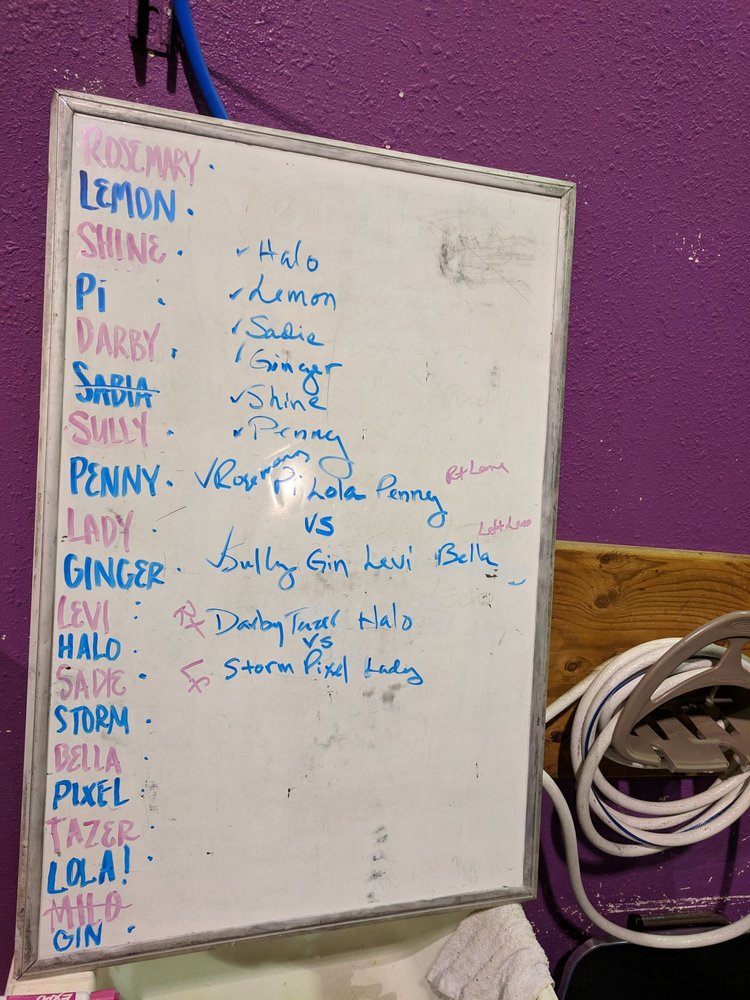 ROSEMARY .
LEMON .
SHINE .
Pi .
DARBY .
SABIA
SULLY .
PENNY .
LADY .
GINGER .
LEVI :
HALO .
SADIE .
STORM .
BELLA .
PIXEL .
TAZER .
LOLA! .
MILO
GIN .
✓ Halo
✓ Lemon
✓ Sadie
✓ Ginger
✓ Shine
✓ Penny
✓ Rosemary
Pi Lola Penny
Rt Lane
vs
Left Lane
✓ Sully Gin Levi Bella
Rt Darby Tazer Halo
vs
Lft Storm Pixel Lady
EXPO